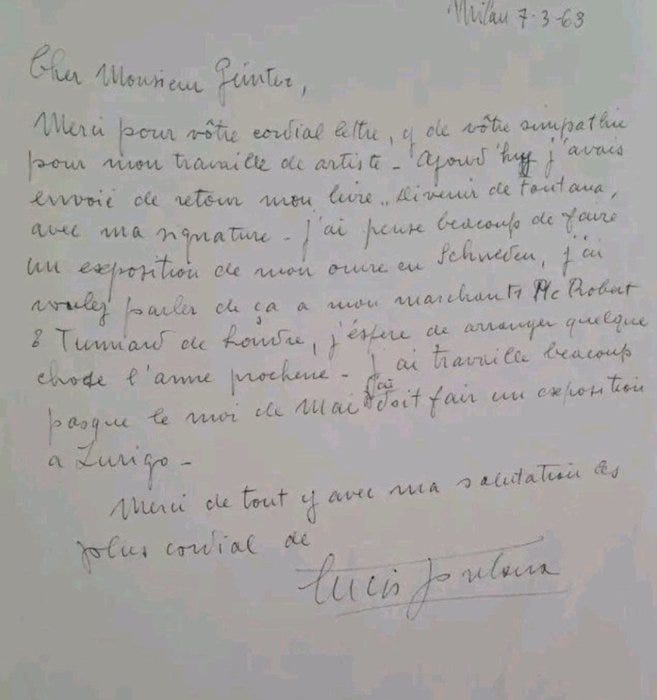 Milan 7-3-63
Cher Monsieur Günter,
Merci pour vôtre cordial lettre, y de vôtre simpathie
pour mon travaille de artiste - j'avais
envoié de retour mon livre „ Divenir de Fontana,
avec ma signature - j'ai pense beaucoup de faire
un exposition de mon ouvre en Schweden, j'ai
voulez parler de ça a mon marchants Mc Robert
& Tunnard de Londre, j'éspere de arranger quelque
chose l'anne prochene - j'ai travaille beaucoup
pasque le moi de Mai j'ai doit fair un exposition
a Zurigo -
Merci de tout y avec ma salutation les
plus cordial de
Lucio Fontana